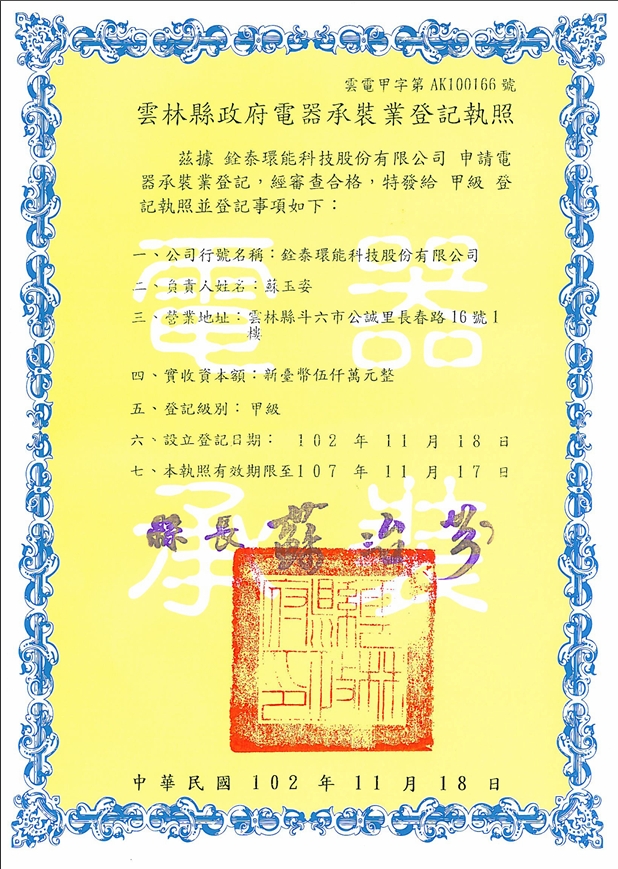 雲電甲字第 AK100166 號
雲林縣政府電器承裝業登記執照
茲據 銓泰環能科技股份有限公司 申請電
器承裝業登記，經審查合格，特發給 甲級 登
記執照並登記事項如下：
一、公司行號名稱：銓泰環能科技股份有限公司
二、負責人姓名：蘇玉安
三、營業地址：雲林縣斗六市公誠里長春路16號1
樓
四、實收資本額：新臺幣伍仟萬元整
五、登記級別：甲級
六、設立登記日期： 102 年 11 月 18 日
七、本執照有效期限至107 年 11 月 17 日
電器
承裝
縣長 蘇治芬
雲林縣政府印
中華民國 102 年 11 月 18 日